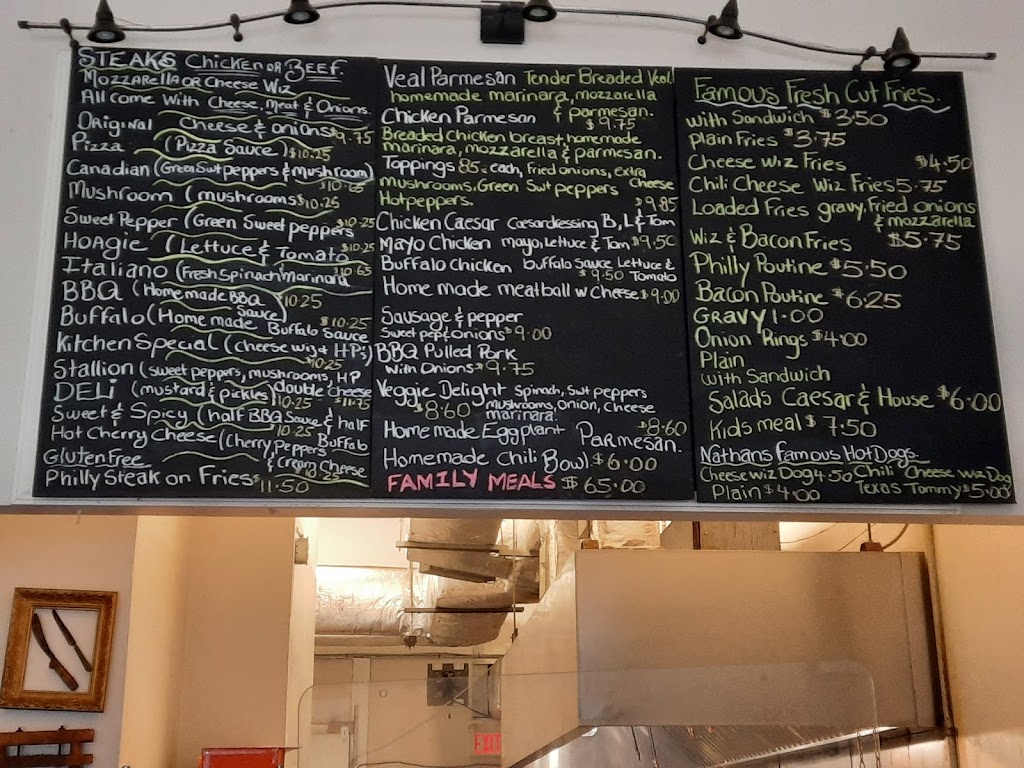 STEAKS Chicken OR BEEF.
Mozzarella or Cheese Wiz
All come with Cheese, Meat & Onions
Original Cheese & onions $9.75
Pizza (Pizza Sauce) $10.25
Canadian (Green Swt peppers & mushroom)
$10.65
Mushroom (mushrooms $10.25
Sweet Pepper (Green Sweet peppers $10.25
Hoagie (Lettuce & Tomato $10.25
Italiano (Fresh Spinach Marinara $10.65
BBQ (Home made BBQ Sauce) $10.25
Buffalo (Home made Buffalo Sauce $10.25
Kitchen Special (cheese wiz & HP's)
$10.25
Stallion (sweet peppers, mushrooms, HP
DELi (mustard & pickles) double cheese
$10.25 $11.75
Sweet & Spicy (half BBQ Sauce & half Buffalo
$10.25
Hot Cherry Cheese (Cherry Peppers & cream cheese
$10.25
Gluten Free
Philly Steak on Fries $11.50
Veal Parmesan Tender Breaded Veal
homemade marinara, mozzarella
& parmesan.
Chicken Parmesan $9.75
Breaded Chicken breast, homemade
marinara, mozzarella & parmesan.
Toppings 85¢ each, fried onions, extra Cheese
mushrooms, Green Swt peppers
Hot peppers.
$9.85
Chicken Caesar Caesar dressing B, L & Tom
Mayo Chicken mayo, Lettuce & Tom $9.50
Buffalo Chicken buffalo Sauce Lettuce & Tomato
$9.50
Home made meatball w Cheese $9.00
Sausage & pepper
Sweet pep & Onions $9.00
BBQ Pulled Pork
with Onions $9.75
Veggie Delight Spinach, Swt peppers
$8.60 mushrooms, onion, cheese
marinara.
Home made Eggplant Parmesan. $8.60
Homemade Chili Bowl $6.00
FAMILY MEALS $65.00
Famous Fresh Cut Fries.
with Sandwich $3.50
plain Fries $3.75
Cheese wiz Fries $4.50
Chili Cheese Wiz Fries 5.75
Loaded Fries gravy, Fried onions
& mozzarella
Wiz & Bacon Fries $5.75
Philly Poutine $5.50
Bacon Poutine $6.25
GRAVY 1.00
Onion Rings $4.00
Plain
with Sandwich
Salads Caesar & House $6.00
Kids meal $7.50
Nathans Famous Hot Dogs.
Cheese wiz Dog 4.50 Chili Cheese wiz Dog
Plain $4.00 Texas Tommy $5.00
EXIT